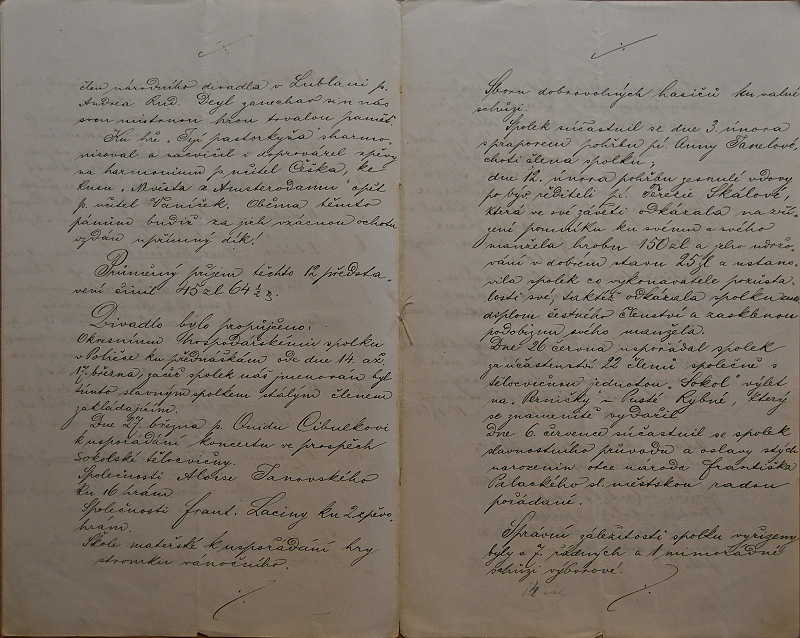 člen národního divadla v Lublani p.
Andrea Rud. Deyl zanechav si u nás
svou mistrnou hrou trvalou paměť.
Ku hře „Její pastorkyňa" sharmo-
nisoval a nacvičil i doprovázel zpěvy
na harmonium p. učitel Češka, ke
kusu „Nevěsta z Amsterodamu" opět
p. učitel Vaníček. Oběma těmto
pánům budiž za jich vzácnou ochotu
vzdán upřímný dík!
Průměrný příjem těchto 12 představ-
vení činil 45 zl 64 ½ kr.
Divadlo bylo propůjčeno:
Okresnímu hospodářskému spolku
v Poličce ku přednáškám ode dne 14. až
17. března, začež spolek náš jmenován byl
tímto slavným spolkem stálým členem
zakládajícím.
Dne 27. března p. Ovidu Cibulkovi
k uspořádání koncertu ve prospěch
Sokolské tělocvičny.
Společnosti Aloise Janovského
ku 16 hrám.
Společnosti Frant. Laciny ku 2 zpěvo-
hrám.
Škole mateřské k uspořádání hry
stromku vánočního.
Sboru dobrovolných hasičů ku valné
schůzi.
Spolek súčastnil se dne 3. února
s praporem pohřbu pí Anny Tamelové,
choti člena spolku;
dne 12. února pohřbu zesnulé vdovy
po býv. řediteli pí. Terezie Skálové,
která ve své závěti odkázala na zří-
zení pomníku ku svému a svého
manžela hrobu 150 zl a jeho udržo-
vání v dobrém stavu 25 zl a ustano-
vila spolek co vykonavatele pozůsta-
losti své, taktéž odkázala spolku
diplom čestného členství a zasklenou
podobiznu svého manžela.
Dne 26. června uspořádal spolek
za účastenství 22 členů společně s
tělocvičnou jednotou „Sokol" výlet
na „Perničky" u Pusté Rybné, který
se znamenitě vydařil.
Dne 6. července súčastnil se spolek
slavnostního průvodu a oslavy stých
narozenin otce národa Františka
Palackého sl. městskou radou
pořádané.
Správní záležitosti spolku vyřízeny
byly v 7. řádných a 1 mimořádné
schůzi výborové.